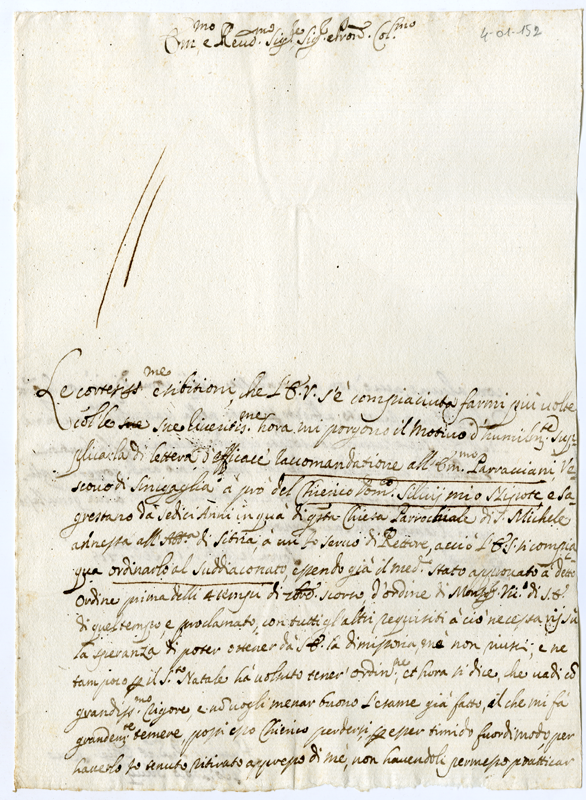 4-01-152
Em.mo e Rever.mo Sig.re Sig.re e Pron. Col.mo
Le cortesiss.me esibitioni, che l'E.V. s'è compiaciuta farmi più volte
colle sue sue licentis.me hora mi porgono il motivo d'humilm.te sup-
plicarla di lettera d'efficace raccomandatione all'Em.mo Parracciani, Ve-
scovo di Sinigaglia à prò del Chierico Dom.co Silvij mio Nipote e Sa-
grestano dà sedici Anni in quà di q.sta Chiesa Parrochiale di S. Michele
annessa all' di à cui Io servo di Rettore, acciò l'E.S. si compia
qua ordinarlo al Suddiaconato essendo già il med.mo stato approvato à detto
ordine prima delli 4 tempi di scorso d'ordine di Mons.r Vic.o di
di quel tempo, e proclamato, con tutti gl'altri requisiti à ciò necessarij, sù
la speranza di poter ottener dà la dimissoria, me non riuscì; e ne
tampoco p il S.to Natale hà voluto tener ordin.ne, et hora si dice, che vadi cõ
grandiss.mo rigore, e nõ vogli menar buono l'esame già fatto, il che mi fà
grandem.te temere, possi esso Chierico perdersi, p esser timido fuor di modo, per
haverlo Io tenuto ritirato appresso di me, non havendoli permesso pratticar